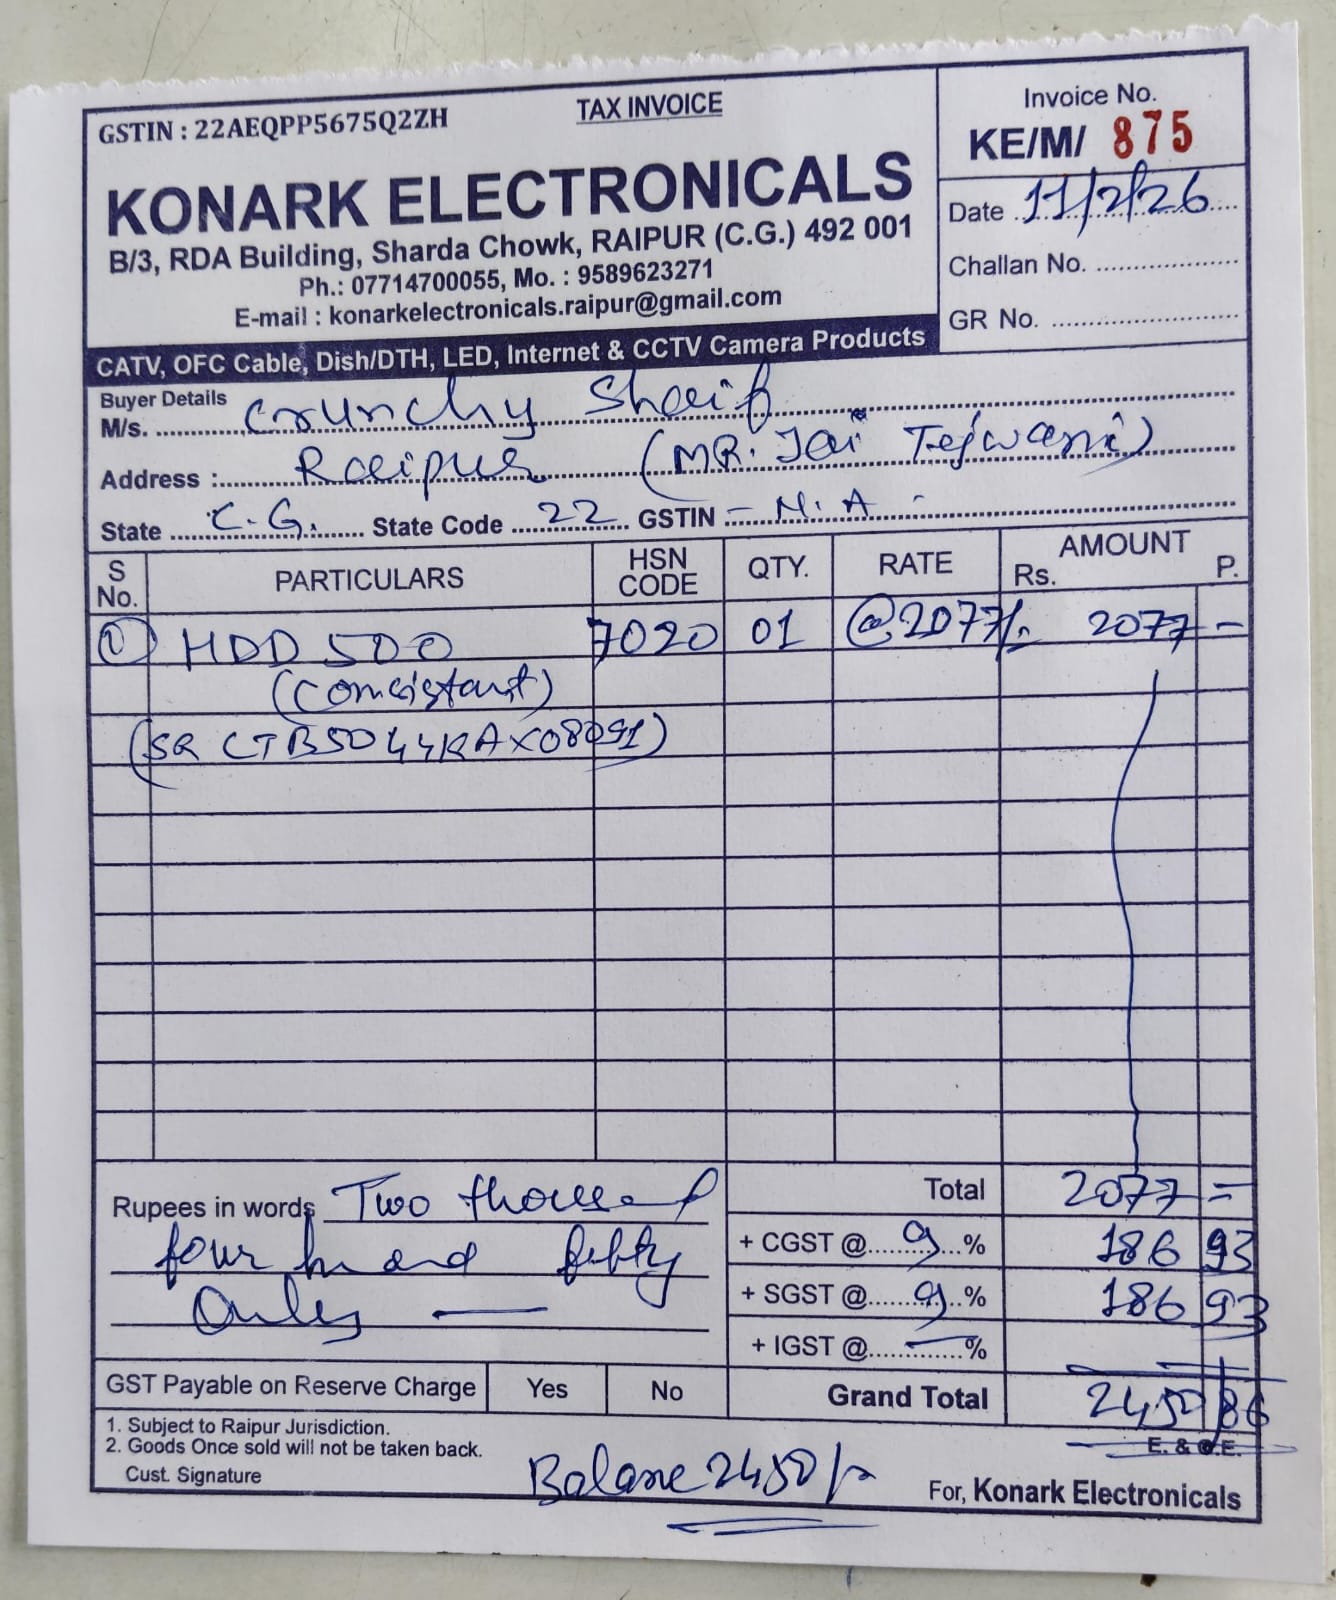 GSTIN : 22AEQPP5675Q2ZH
TAX INVOICE
Invoice No.
KE/M/ 875
KONARK ELECTRONICALS
B/3, RDA Building, Sharda Chowk, RAIPUR (C.G.) 492 001
Ph.: 07714700055, Mo. : 9589623271
E-mail : konarkelectronicals.raipur@gmail.com
Date 11/2/26
Challan No.
GR No.
CATV, OFC Cable, Dish/DTH, LED, Internet & CCTV Camera Products
Buyer Details
M/s. Crunchy Sheif
Address : Raipur (MR. Jai Tejwani)
State C.G. State Code 22 GSTIN - N.A
S No. PARTICULARS HSN CODE QTY. RATE AMOUNT Rs. P.
1 HDD 500 7020 01 @2077/- 2077 -
(Comsistant)
(SR CTB5044KAX08091)
Total 2077 =
Rupees in words Two thousand
four hund fifty
Only
+ CGST @ 9 % 186 93
+ SGST @ 9 % 186 93
+ IGST @ — %
GST Payable on Reserve Charge Yes No
Grand Total 2450 86
E. & O.E.
1. Subject to Raipur Jurisdiction.
2. Goods Once sold will not be taken back.
Cust. Signature
Balane 2450/-
For, Konark Electronicals